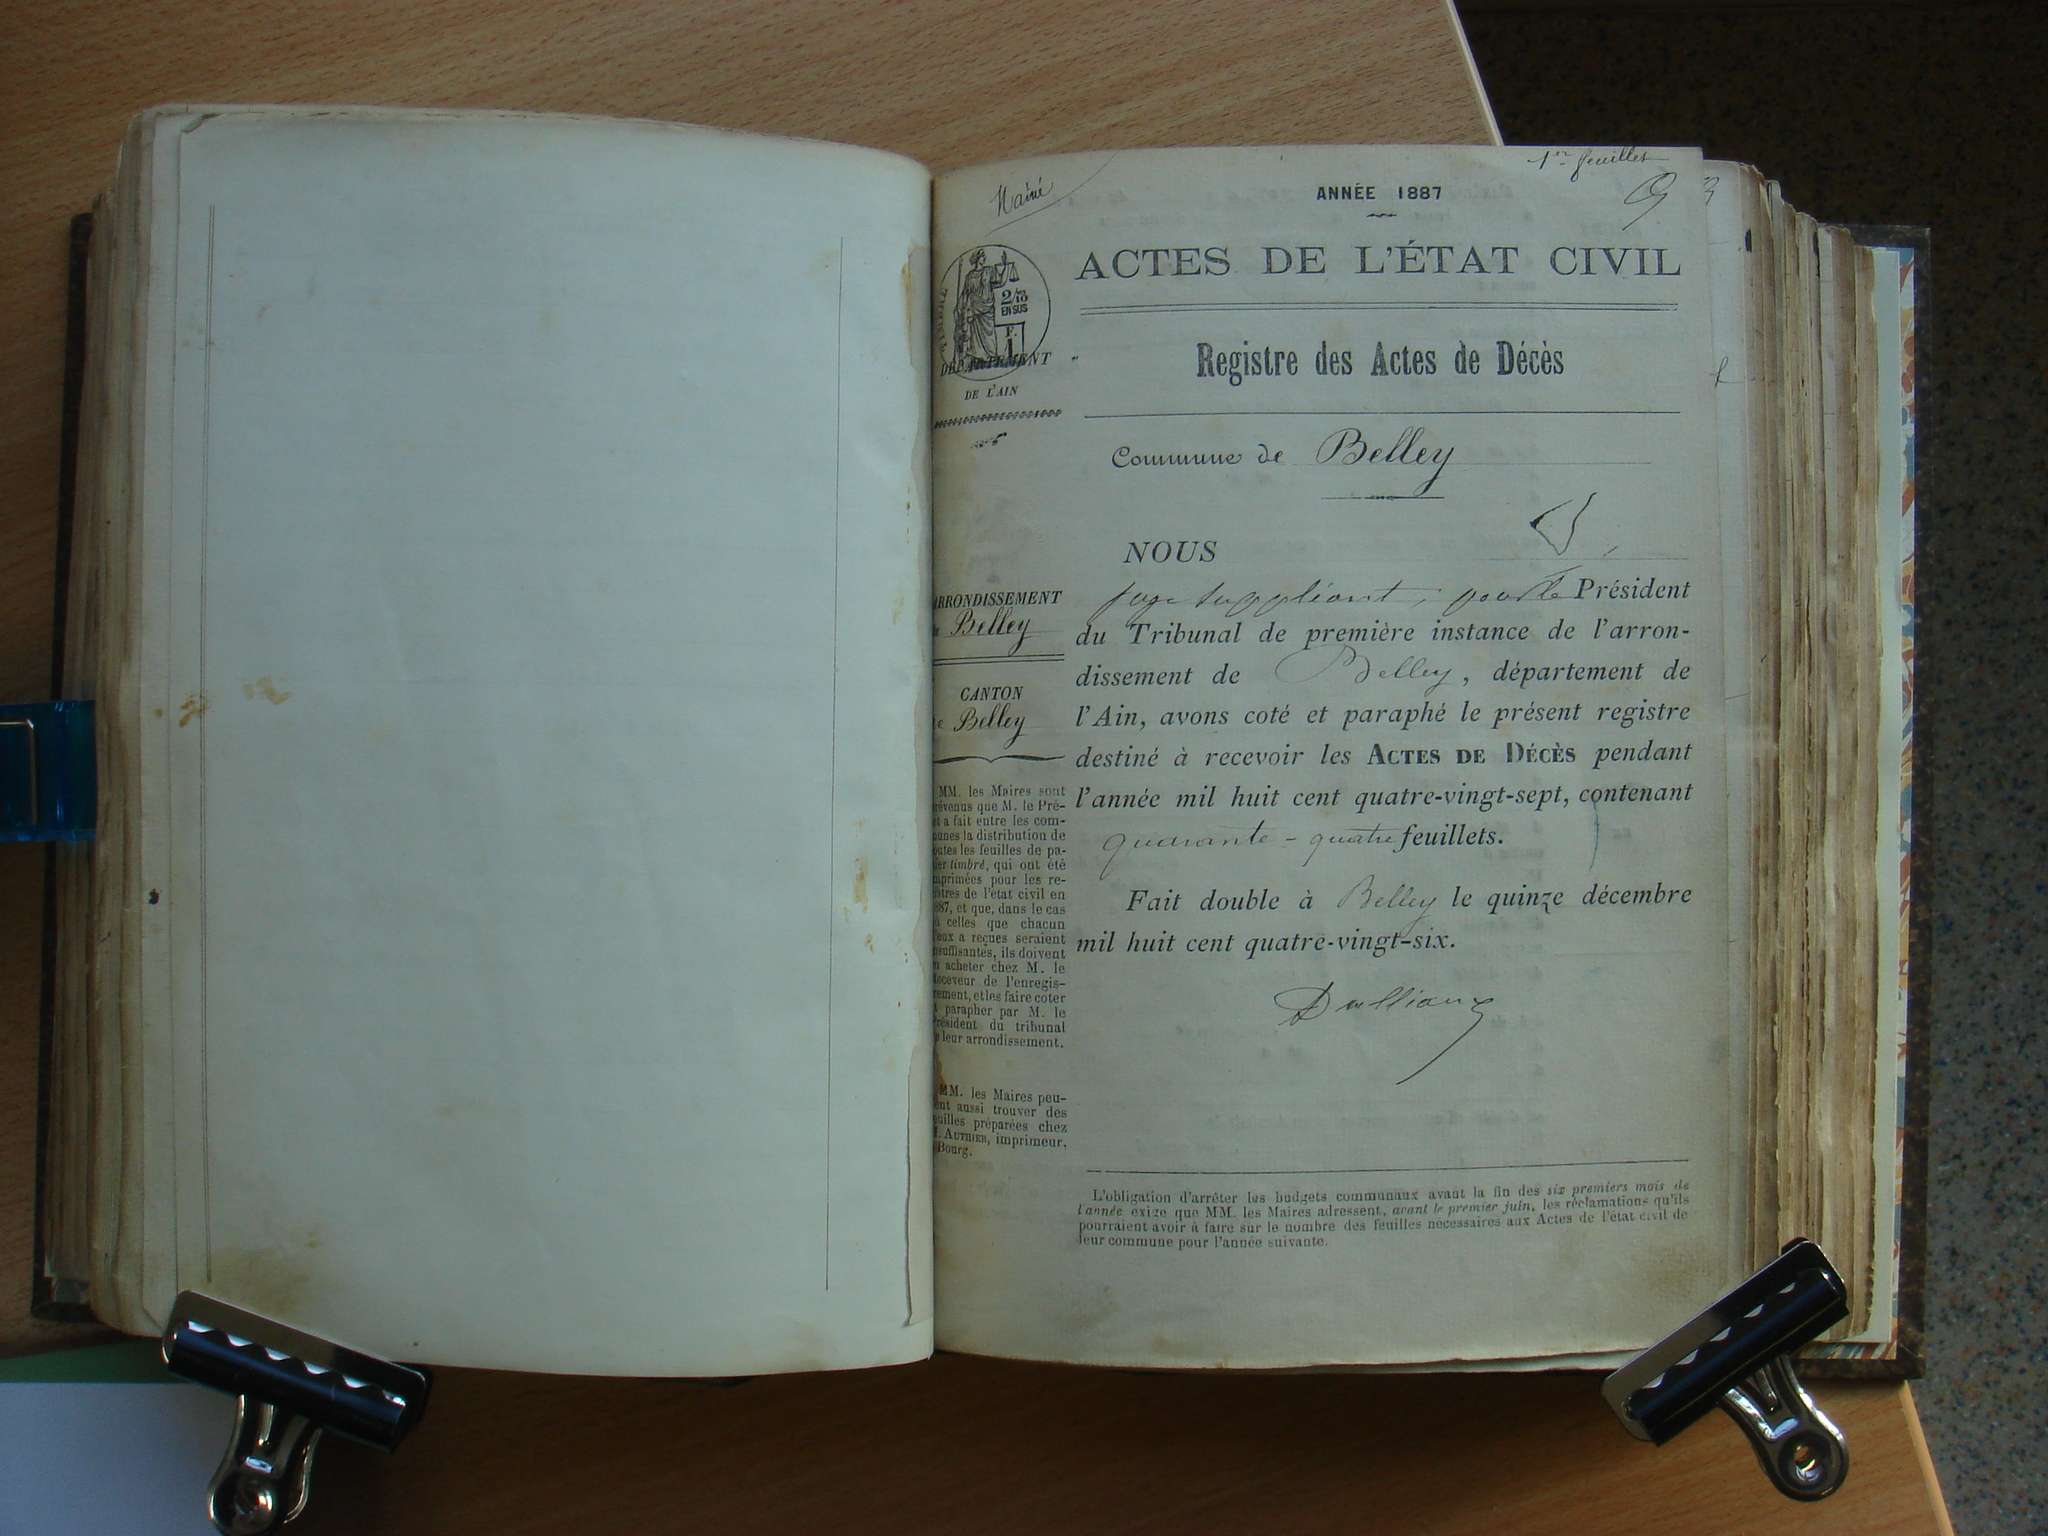 Mairie
1er feuillet
ANNÉE 1887
ACTES DE L'ÉTAT CIVIL
Registre des Actes de Décès
Commune de Belley
TIMBRE
2/10
EN SUS
F.
1
DÉPARTEMENT
DE L'AIN
ARRONDISSEMENT
de Belley
CANTON
de Belley
MM. les Maires sont
prévenus que M. le Pré-
et a fait entre les com-
munes la distribution de
toutes les feuilles de pa-
pier timbré, qui ont été
imprimées pour les re-
gistres de l'état civil en
1887, et que, dans le cas
où celles que chacun
d'eux a reçues seraient
insuffisantes, ils doivent
en acheter chez M. le
Receveur de l'enregis-
trement, et les faire coter
et parapher par M. le
Président du tribunal
de leur arrondissement.
MM. les Maires peu-
vent aussi trouver des
feuilles préparées chez
M. AUTHIER, imprimeur,
à Bourg.
NOUS
juge suppléant, pour le Président
du Tribunal de première instance de l'arron-
dissement de Belley, département de
l'Ain, avons coté et paraphé le présent registre
destiné à recevoir les ACTES DE DÉCÈS pendant
l'année mil huit cent quatre-vingt-sept, contenant
quarante-quatre feuillets.
Fait double à Belley le quinze décembre
mil huit cent quatre-vingt-six.
L'obligation d'arrêter les budgets communaux avant la fin des six premiers mois de
l'année exige que MM. les Maires adressent, avant le premier juin, les réclamations qu'ils
pourraient avoir à faire sur le nombre des feuilles nécessaires aux Actes de l'état civil de
leur commune pour l'année suivante.